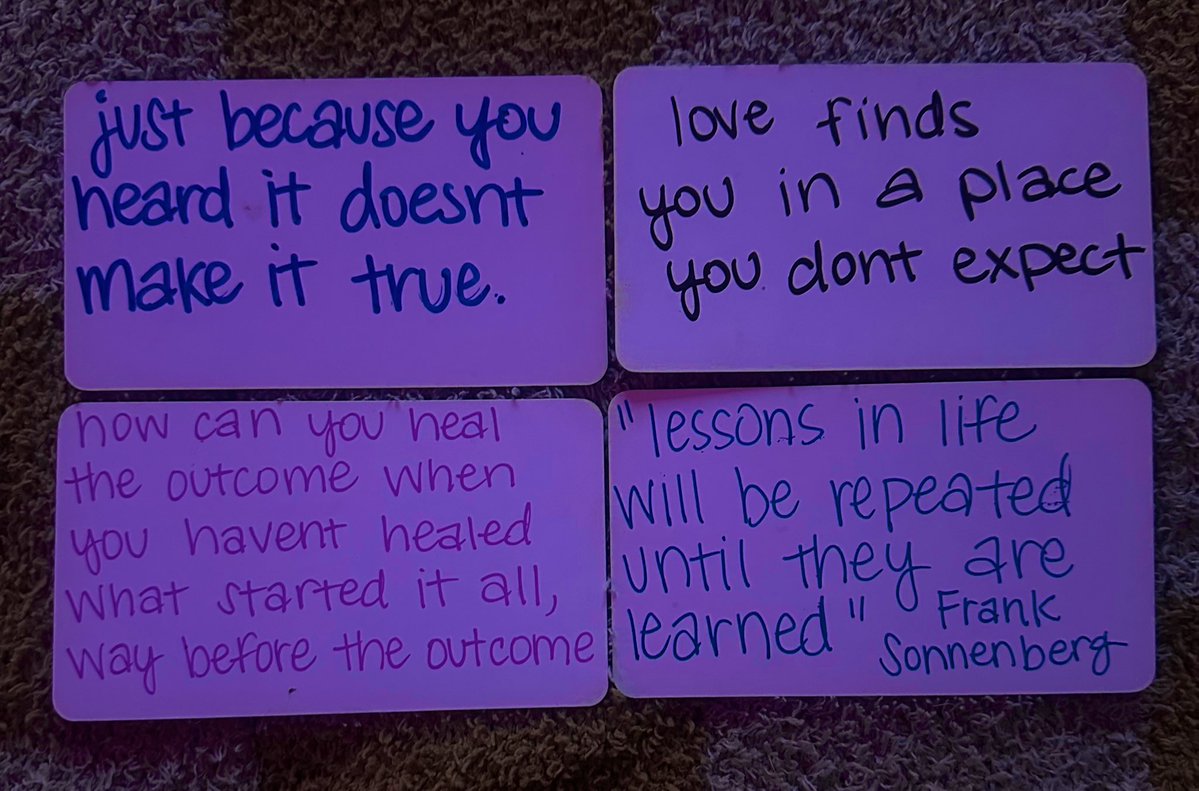 just because you
heard it doesnt
make it true.
love finds
you in a place
you dont expect
how can you heal
the outcome when
you havent healed
what started it all,
way before the outcome
"lessons in life
will be repeated
until they are
learned" Frank
Sonnenberg